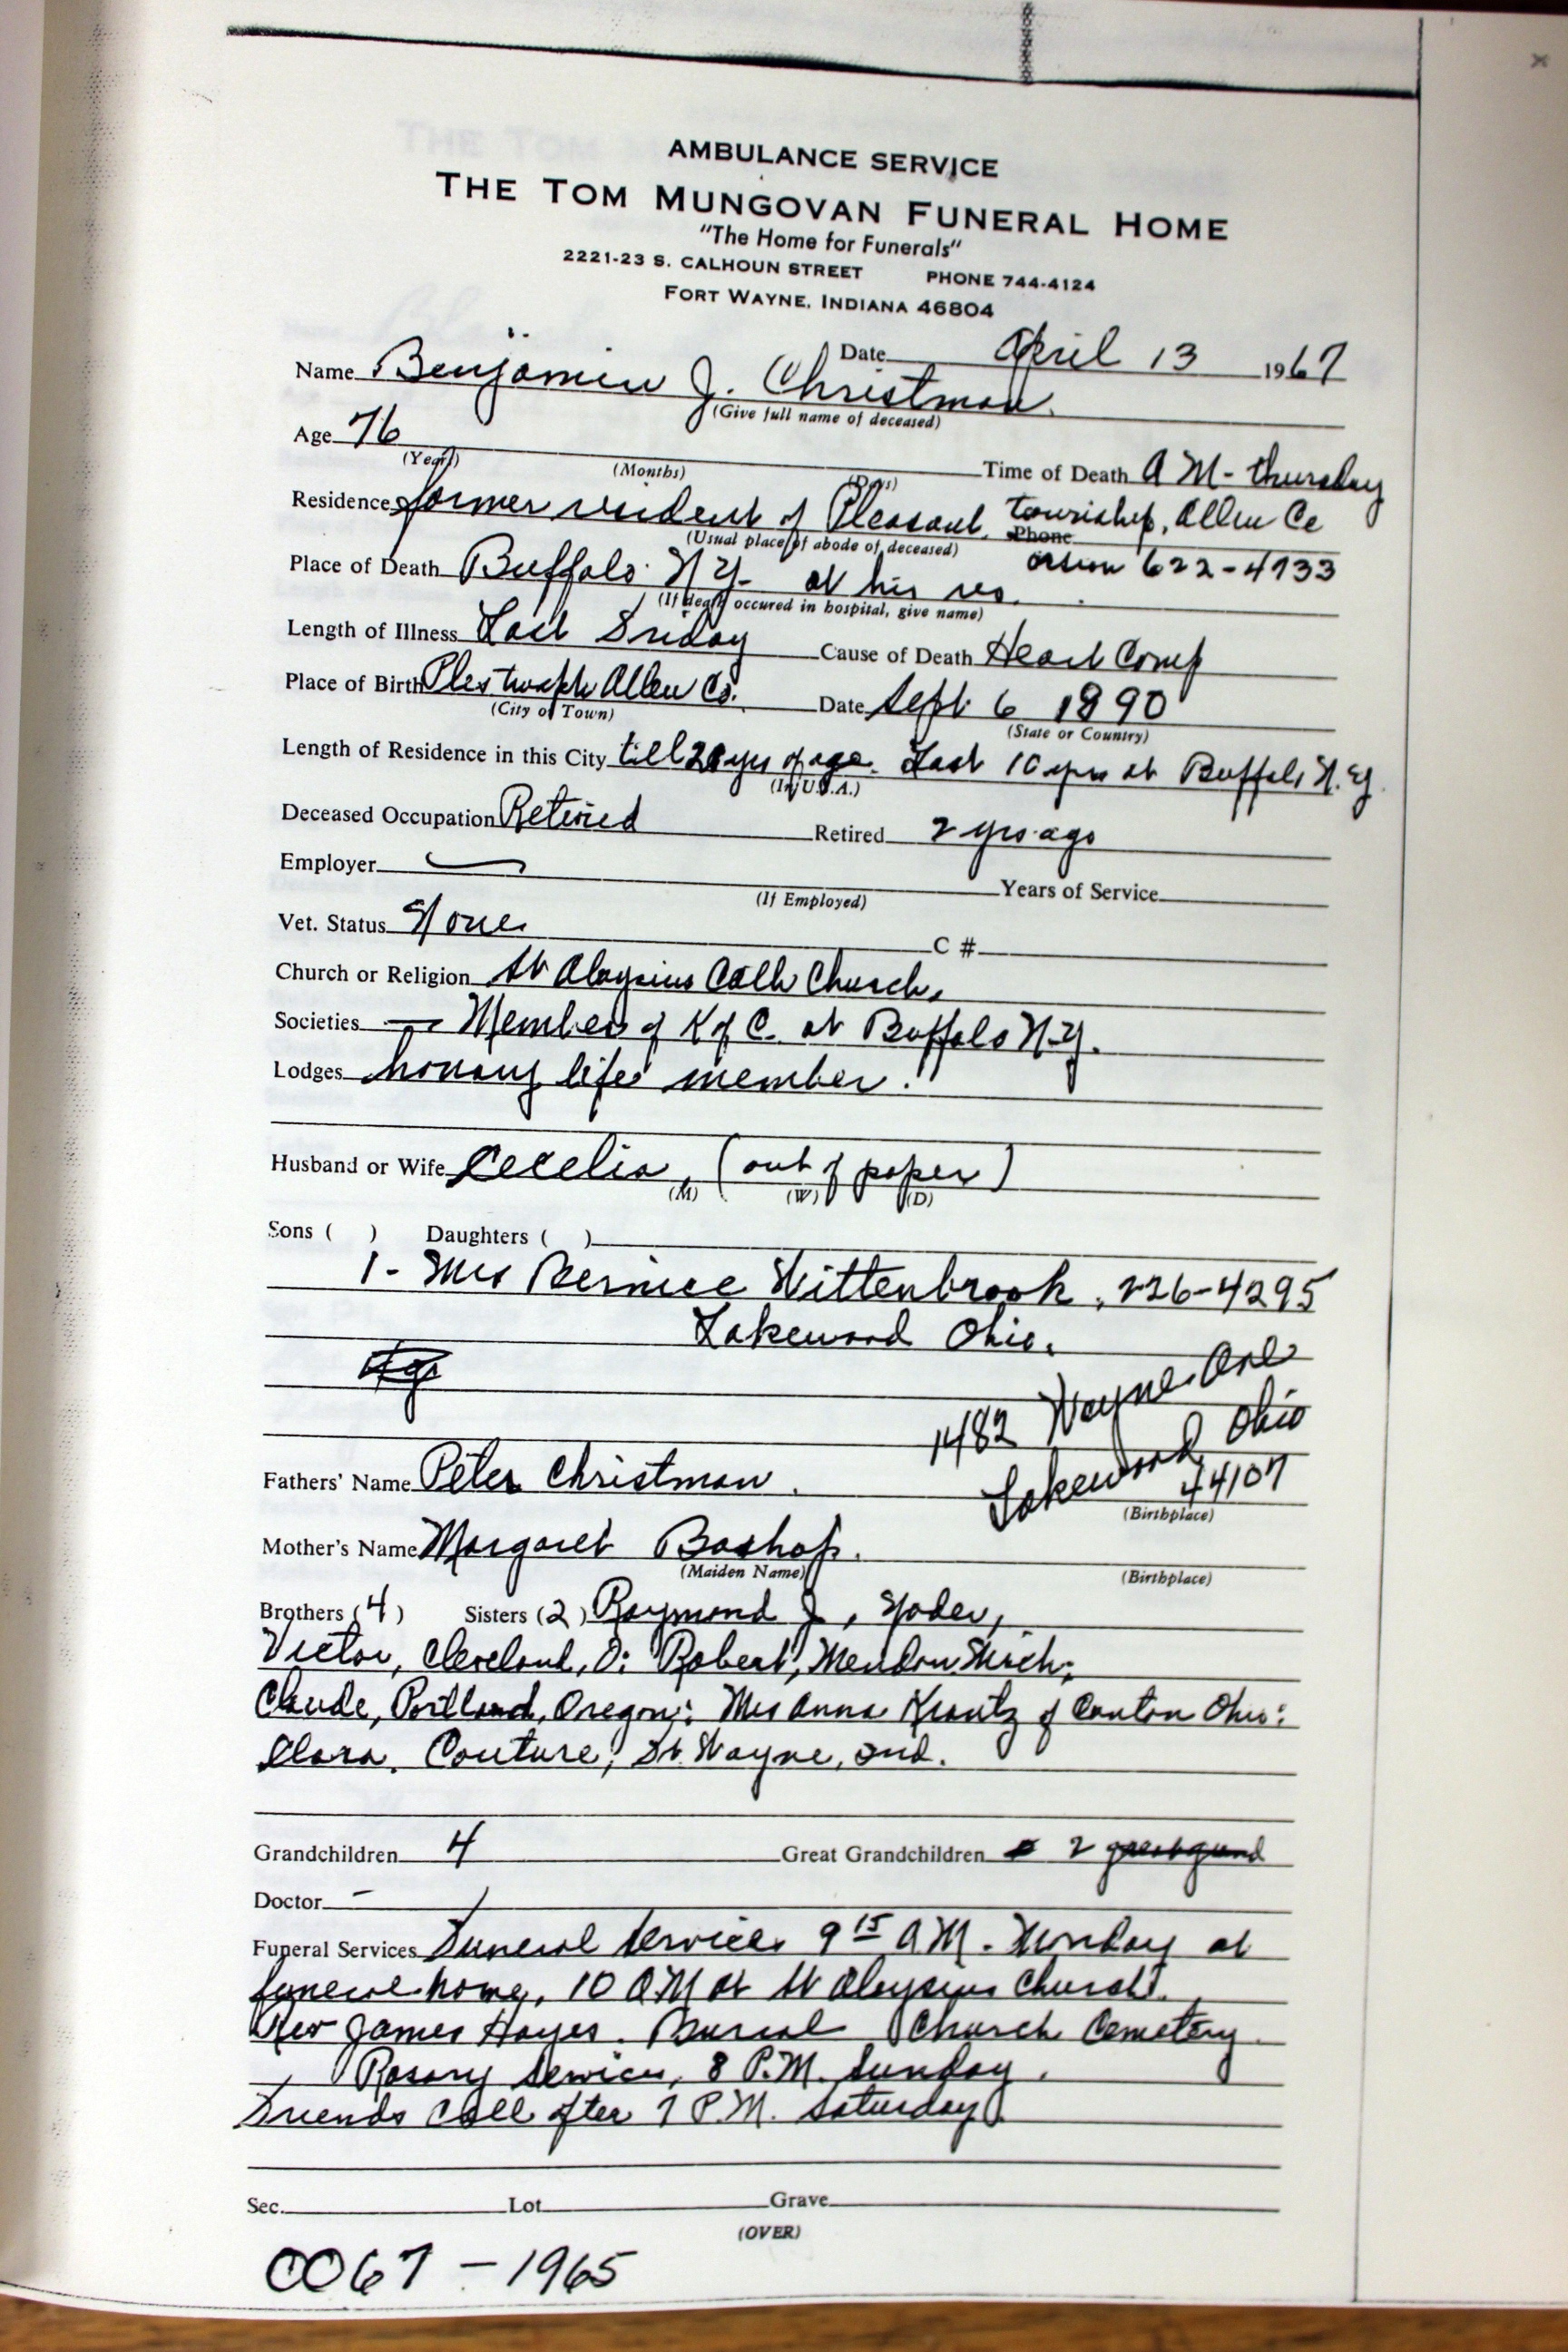 AMBULANCE SERVICE
THE TOM MUNGOVAN FUNERAL HOME
"The Home for Funerals"
2221-23 S. CALHOUN STREET PHONE 744-4124
FORT WAYNE, INDIANA 46804
Date April 13 1967
Name Benjamin J. Christman.
(Give full name of deceased)
Age 76 Time of Death A M - thursday
(Year) (Months) (Days)
Residence former resident of Pleasant township, Allen Co
(Usual place of abode of deceased) Phone
Place of Death Buffalo N Y - at his res. 622-4733
(If death occured in hospital, give name)
Length of Illness Last Friday Cause of Death Heart Comp
Place of Birth Ples twsph Allen Co. Date Sept 6 1890
(City of Town) (State or Country)
Length of Residence in this City till 20 yrs of age. Last 10 yrs at Buffalo N.Y.
(In U.S.A.)
Deceased Occupation Retired Retired 2 yrs ago
Employer Years of Service
(If Employed)
Vet. Status None C #
Church or Religion St Aloysius Cath Church,
Societies — Member of K of C. at Buffalo N.Y.
Lodges honary life member.
Husband or Wife Cecelia, (out of paper)
(M) (W) (D)
Sons ( ) Daughters ( )
1 - Mrs Bernice Wittenbrook, 226-4295
Lakewood Ohio.
1482 Wayne Ave
Lakewood Ohio
44107
Fathers' Name Peter Christman.
(Birthplace)
Mother's Name Margaret Bashop.
(Maiden Name) (Birthplace)
Brothers (4) Sisters (2) Raymond J, Yoder,
Victor, Cleveland, O; Robert, Mendon Mich;
Claude, Portland, Oregon; Mrs Anna Krantz of Canton Ohio;
Clara. Couture, Ft. Wayne, Ind.
Grandchildren 4 Great Grandchildren 2 great grand
Doctor -
Funeral Services Funeral Services 9 15 A.M. Monday at
funeral home, 10 A M at St Aloysius Church.
Rev James Hayes. Burial Church Cemetery.
Rosary Services, 8 P.M. Sunday.
Friends call after 7 P.M. Saturday.
Sec. Lot Grave
(OVER)
CO67 - 1965